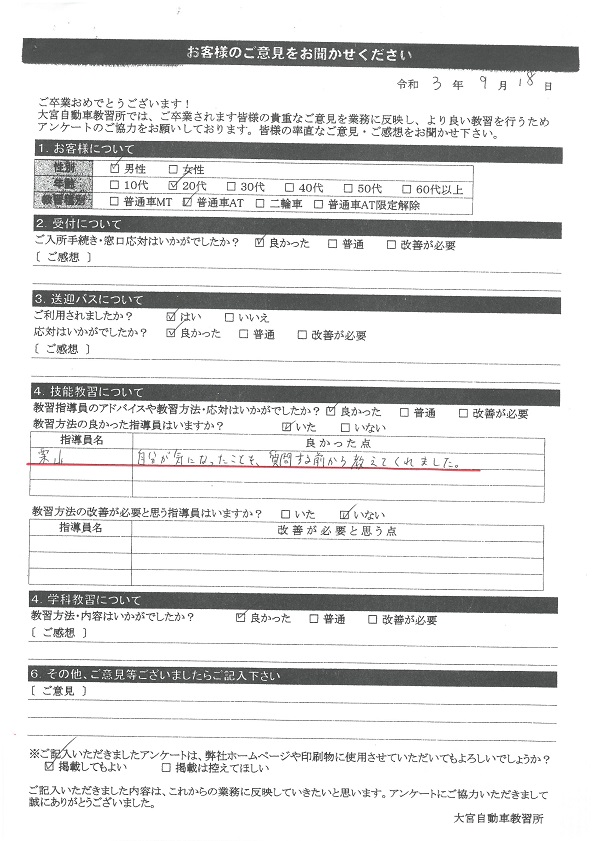 お客様のご意見をお聞かせください
令和 3 年 9 月 18 日
ご卒業おめでとうございます!
大宮自動車教習所では、ご卒業されます皆様の貴重なご意見を業務に反映し、より良い教習を行うため
アンケートのご協力をお願いしております。皆様の率直なご意見・ご感想をお聞かせ下さい。
1. お客様について
性別 ☑ 男性 □ 女性
年齢 □ 10代 ☑ 20代 □ 30代 □ 40代 □ 50代 □ 60代以上
教習種別 □ 普通車MT ☑ 普通車AT □ 二輪車 □ 普通車AT限定解除
2. 受付について
ご入所手続き・窓口応対はいかがでしたか? ☑ 良かった □ 普通 □ 改善が必要
[ ご感想 ]
3. 送迎バスについて
ご利用されましたか? ☑ はい □ いいえ
応対はいかがでしたか? ☑ 良かった □ 普通 □ 改善が必要
[ ご感想 ]
4. 技能教習について
教習指導員のアドバイスや教習方法・応対はいかがでしたか? ☑ 良かった □ 普通 □ 改善が必要
教習方法の良かった指導員はいますか? ☑ いた □ いない
指導員名 良かった点
栗山 自分が気になったことを、質問する前から教えてくれました。
教習方法の改善が必要と思う指導員はいますか? □ いた ☑ いない
指導員名 改善が必要と思う点
4. 学科教習について
教習方法・内容はいかがでしたか? ☑ 良かった □ 普通 □ 改善が必要
[ ご感想 ]
6. その他、ご意見等ございましたらご記入下さい
[ ご意見 ]
※ご記入いただきましたアンケートは、弊社ホームページや印刷物に使用させていただいてもよろしいでしょうか?
☑ 掲載してもよい □ 掲載は控えてほしい
ご記入いただきました内容は、これからの業務に反映していきたいと思います。アンケートにご協力いただきまして
誠にありがとうございました。
大宮自動車教習所